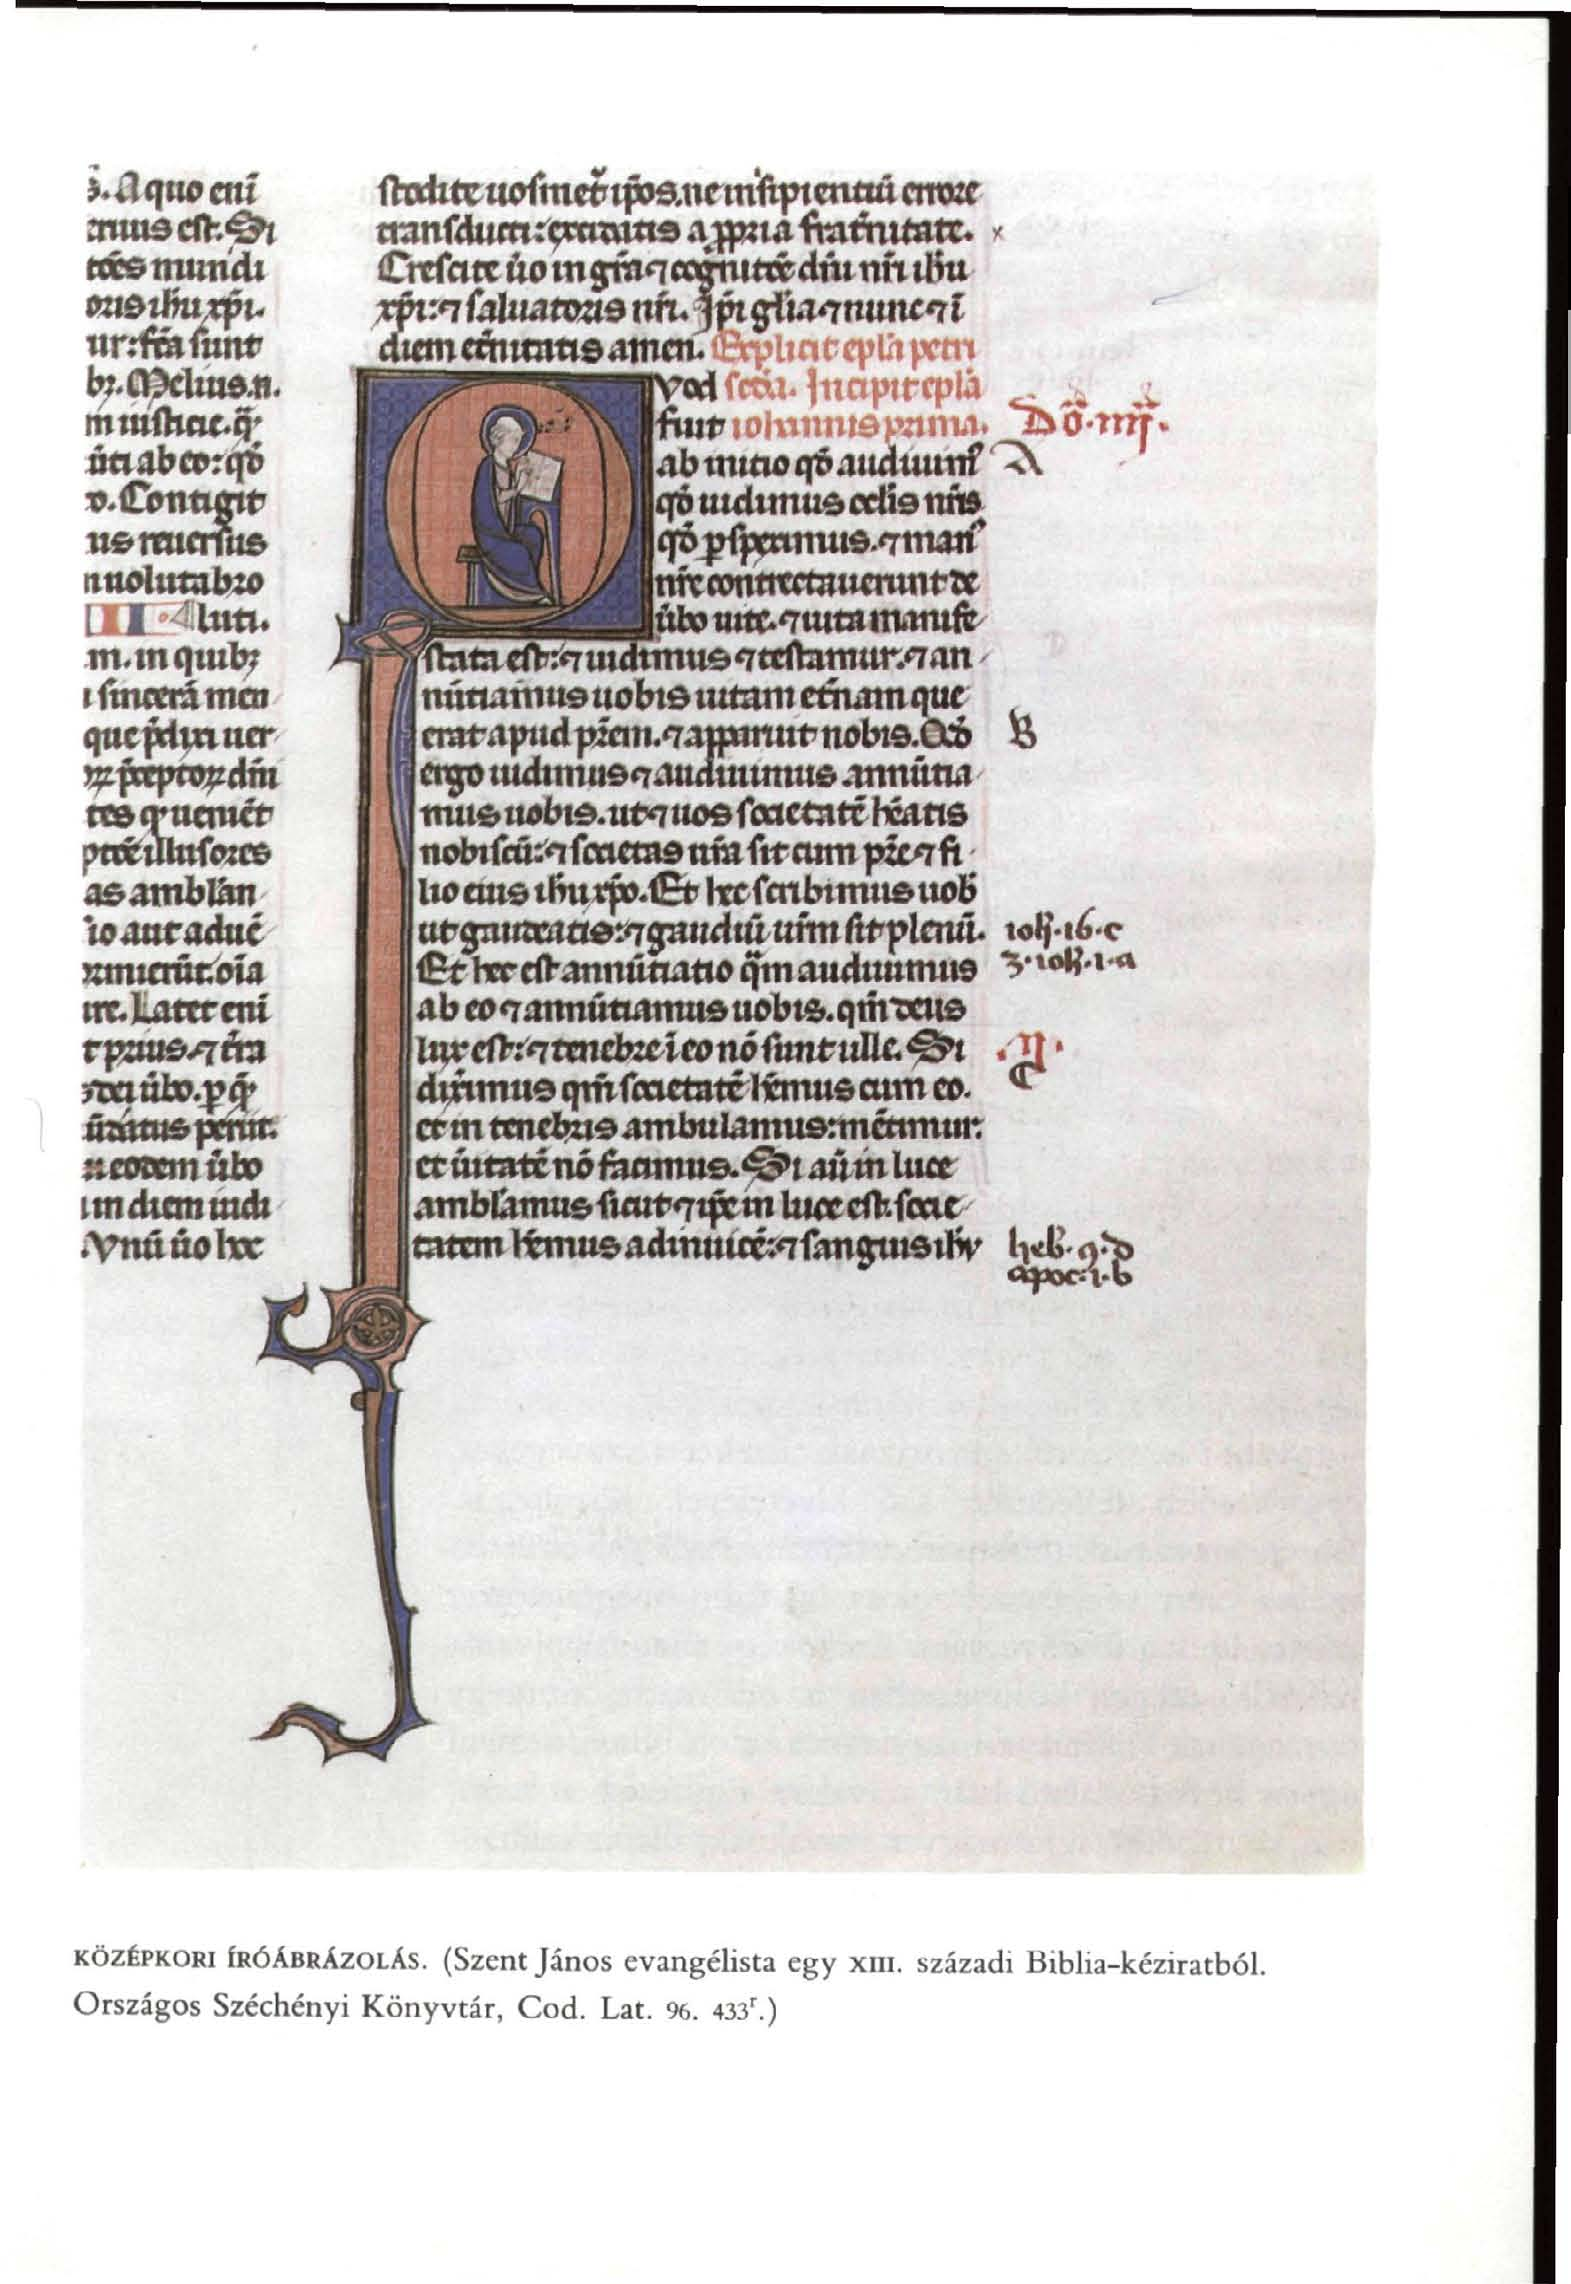 s. A quo eni̅
terius est. Si
tōes mundi
oris ihu xp̅i.
ur: fc̅a sunt
bꝫ. Melius .n.
m iusticie. q̅
ūti ab eo: qđ
o. Contigit
us reuersus
n uolutabro
luti.
m. in quibꝫ
sincerā men
que p̅dixi uer
oꝝ p̅ceptoꝝ dn̅i
tes qꝫ uenie̅t
ptōe illusores
as amblan
io aut aduē
ormierūt: oīa
ire. Latet enī
t prius. ⁊ t̅ra
s dei ūbo. ꝑ q̅
ūdatus periit.
eodem ūbo
in diem iudi
Vnū u̅o hec
stodite uosmet ip̅os. ne insipientiū errore
transducti: excidatis a ꝓpria frat̅nitate. x
Crescite u̅o in gr̅a ⁊ cognitōe dn̅i nr̅i ihu
xp̅i: ⁊ saluatoris nr̅i. Ip̅i gl̅ia ⁊ nunc ⁊ ī
diem et̅nitatis amen. Explicit epl̅a petri
Vod scđa. Incipit epl̅a
fuit iohannis prima.
ab initio qđ audiuim᾽
qđ uidimus oclis nr̅is
qđ ꝑspeximus. ⁊ man᾽
nr̅e contrectauerunt de
u̅bo uite. ⁊ uita manife
stata est: ⁊ uidimus ⁊ testamur. ⁊ an
nūtiamus uobis uitam et̅nam que
erat apud pr̅em. ⁊ apparuit nobis. Qđ
ergo uidimus ⁊ audiuimus annūtia
mus uobis. ut ⁊ uos societatē he̅atis
nobiscū: ⁊ societas nr̅a sit cum pr̅e ⁊ fi
lio eius ihu xp̅o. Et hec scribimus uob̅
ut gaudeatis: ⁊ gaudiū ur̅m sit plenū.
Et hec est annūtiatio q̅m audiuimus
ab eo ⁊ annūtiamus uobis. qm̅ deus
lux est: ⁊ tenebre ī eo nō sunt ulle. Si
dix̅imus qm̅ societatē he̅mus cum eo.
et in tenebris ambulamus: mētimur:
et u̅itatē nō facimus. Si aū in luce
amblamus sicut ⁊ ip̅e in luce est. socie
tatem he̅mus adinuicē: ⁊ sanguis ihu
A
B
ioh. 16. c
3. ioh. 1. a
C
heb. 9. d
apoc. 1. b
KÖZÉPKORI ÍRÓÁBRÁZOLÁS. (Szent János evangélista egy XIII. századi Biblia-kéziratból.
Országos Széchényi Könyvtár, Cod. Lat. 96. 433r.)